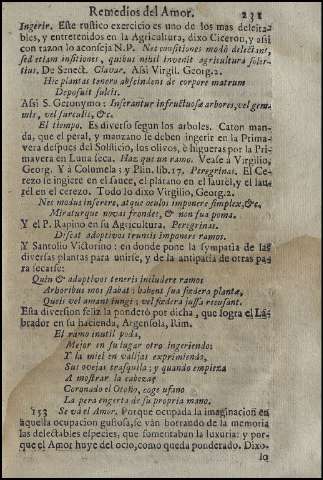 Remedios del Amor. 231
Ingerir. Este rustico exercicio es uno de los mas deleita-
bles, y entretenidos en la Agricultura, dixo Ciceron, y assi
con razon lo aconseja N.P. Nec consitiones modò delectant,
sed etiam insitiones, quibus nihil invenit agricultura soler-
tius. De Senect. Clavar. Assi Virgil. Georg. 2.
Hic plantas tenero abscindens de corpore matrum
Deposuit sulcis.
Assi S. Geronymo: Inserantur infructuosæ arbores, vel gem-
mis, vel surculis, &c.
El tiempo. Es diverso segun los arboles. Caton man-
da, que el peral, y manzano se deben ingerir en la Prima-
vera despues del Solsticio, los olivos, è higueras por la Pri-
mavera en Luna seca. Haz que un ramo. Vease à Virgilio,
Georg. Y à Columela; y Plin. lib. 17. Peregrinas. El Ce-
rezo se ingiere en el sauce, el platano en el laurèl, y el lau-
rel en el cerezo. Todo lo dixo Virgilio, Georg. 2.
Nec modus inserere, atque oculos imponere simplex, &c.
Miraturque novas frondes, & non sua poma.
Y el P. Rapino en su Agricultura. Peregrinas.
Discat adoptivos truncis imponere ramos.
Y Santolio Victorino: en donde pone la sympatia de las
diversas plantas para unirse, y de la antipatia de otras pa-
ra secarse:
Quin & adoptivos teneris includere ramos
Arboribus mos stabat: habent sua fœdera plantæ,
Queis vel amant iungi; vel fœdera jussa recusant.
Esta diversion feliz la ponderò por dicha, que logra el La-
brador en su hacienda, Argensola, Rim.
El ramo inutil poda,
Mejor en su lugar otro ingeriendo;
Y la miel en vasijas exprimiendo,
Sus ovejas trasquila; y quando empieza
A mostrar la cabeza
Coronado el Otoño, coge ufano
La pera engerta de su propria mano.
153 Se và el Amor. Porque ocupada la imaginacion en
aquella ocupacion gustosa, se vàn borrando de la memoria
las delectables especies, que fomentaban la luxuria: y por-
que el Amor huye del ocio, como queda ponderado. Dixo-
lo